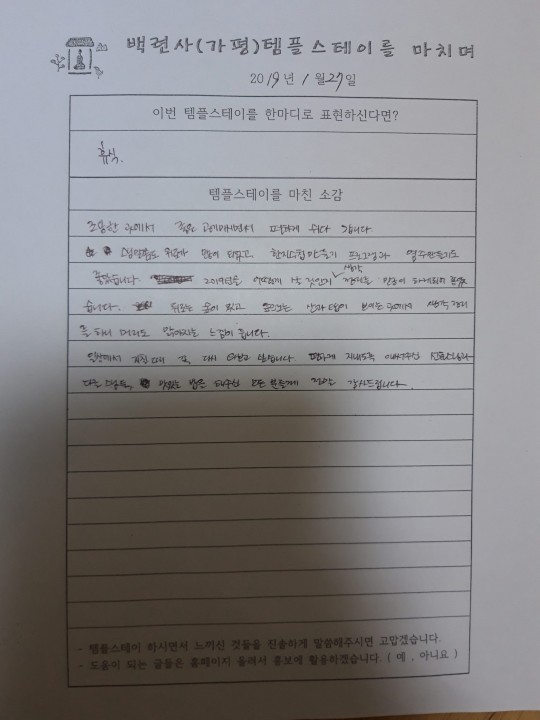 백련사(가평)템플스테이를 마치며
2019년 1월27일
이번 템플스테이를 한마디로 표현하신다면?
휴식.
템플스테이를 마친 소감
조용한 곳에서 좋은 공기마시면서 편하게 쉬다 갑니다.
스님말씀도 위로가 많이 되었고, 한지수첩만들기 프로그램과 염주만들기도
좋았습니다. 2019년을 어떻게 살 것인지 생각
습니다. 뒤로는 숲이 있고 앞으로는 산과 보이는 곳에서 생각정리
를 하니 머리도 맑아지는 느낌이 듭니다.
일상에서 지칠 때 꼭 다시 와보고 싶습니다. 편하게 지내도록 스님과
다른 스님들, 맛있는 밥을 해주신 모든 분들께 정말 감사드립니다.
- 템플스테이 하시면서 느끼신 것들을 진솔하게 말씀해주시면 고맙겠습니다.
- 도움이 되는 글들은 홈페이지 올려서 홍보에 활용하겠습니다. ( 예 , 아니요 )